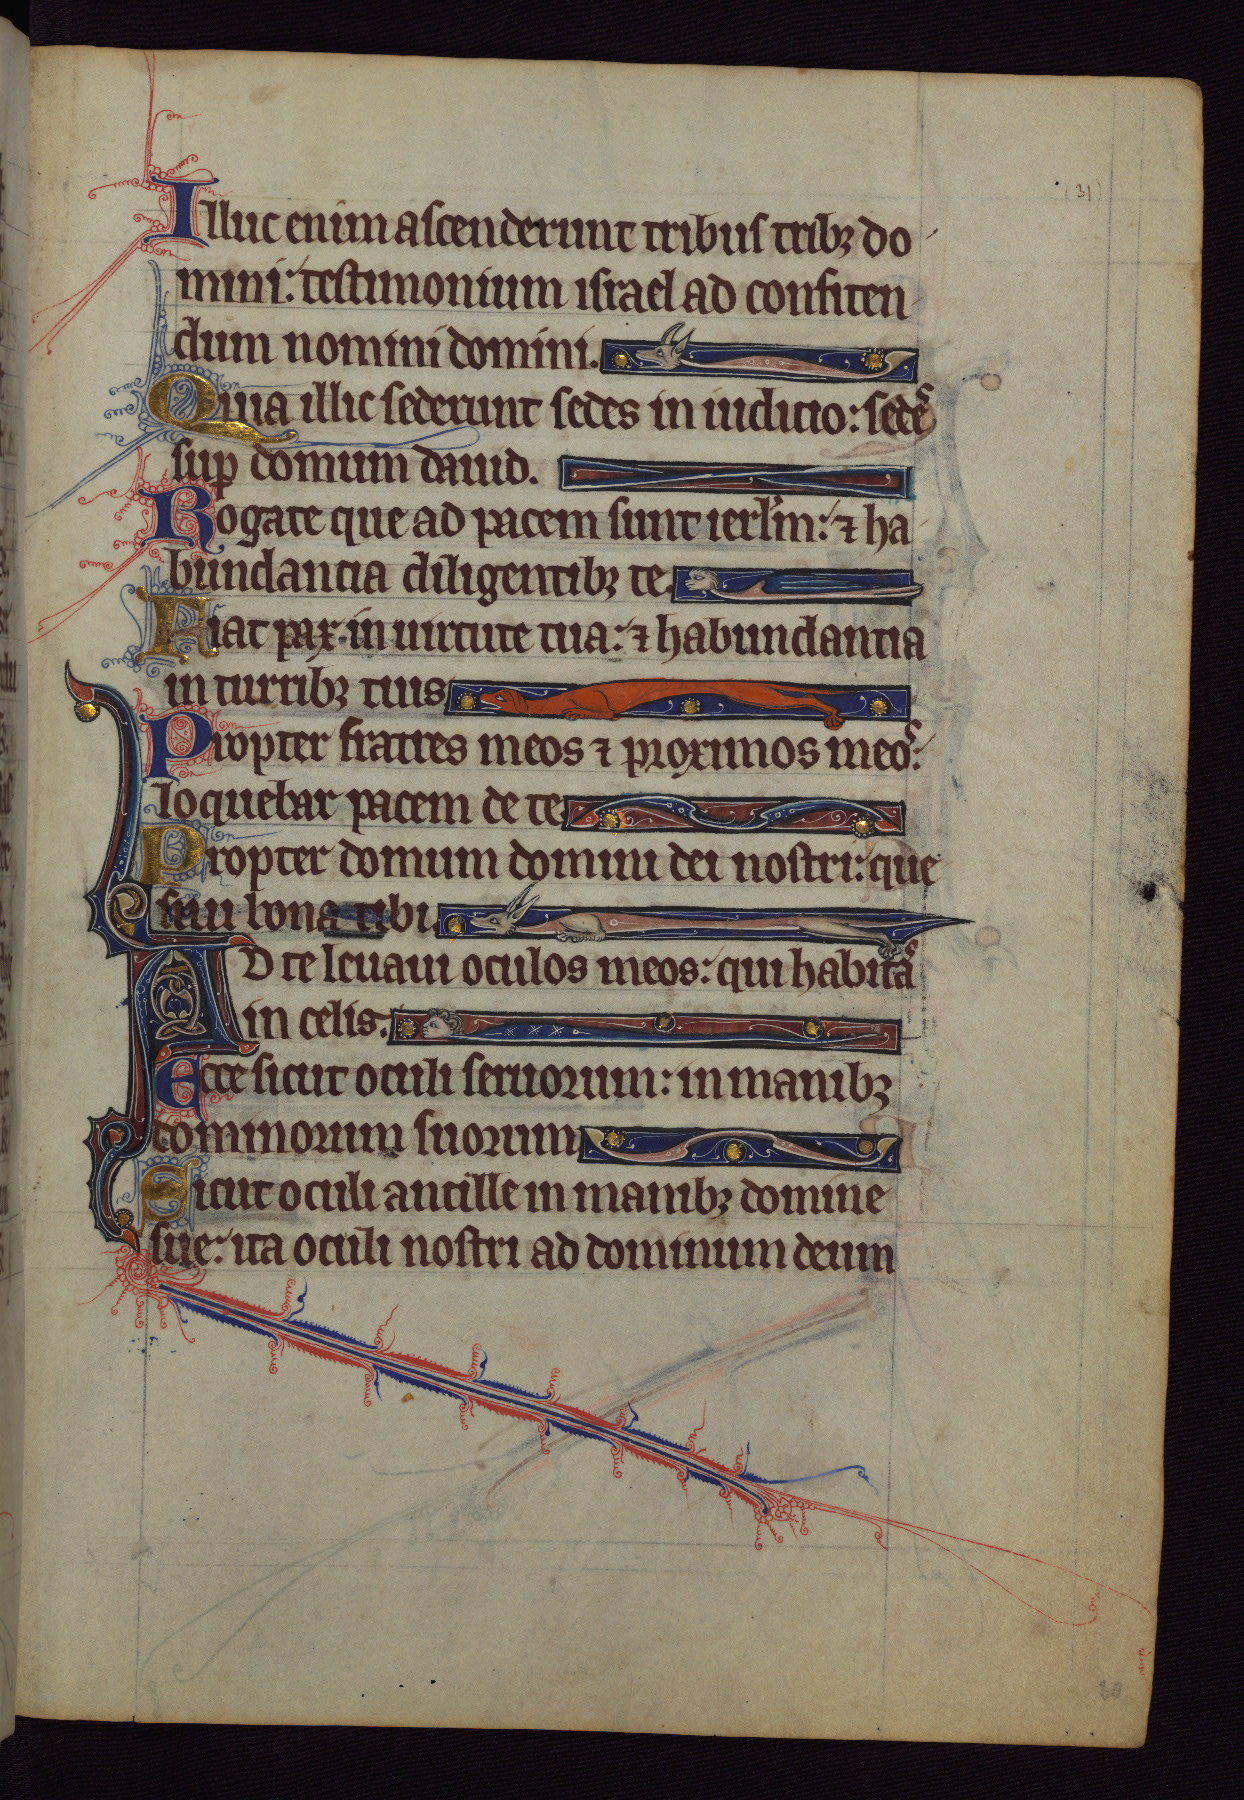 (31)
Illuc enim ascenderunt tribus tribꝫ do
mini: testimonium israel ad confiten
dum nomini domini.
Quia illic sederunt sedes in iudicio: sede
sup domum dauid.
Rogate que ad pacem sunt ierlm: ⁊ ha
bundancia diligentibꝫ te.
Fiat pax in uirtute tua: ⁊ habundantia
in turribꝫ tuis
Propter fratres meos ⁊ proximos meo:
loquebar pacem de te
Propter domum domini dei nostri: que
siui bona tibi.
AD te leuaui oculos meos: qui habita
in celis.
Ecce sicut oculi seruorum: in manibꝫ
dominorum suorum
Sicut oculi ancille in manibꝫ domine
sue: ita oculi nostri ad dominum deum
30